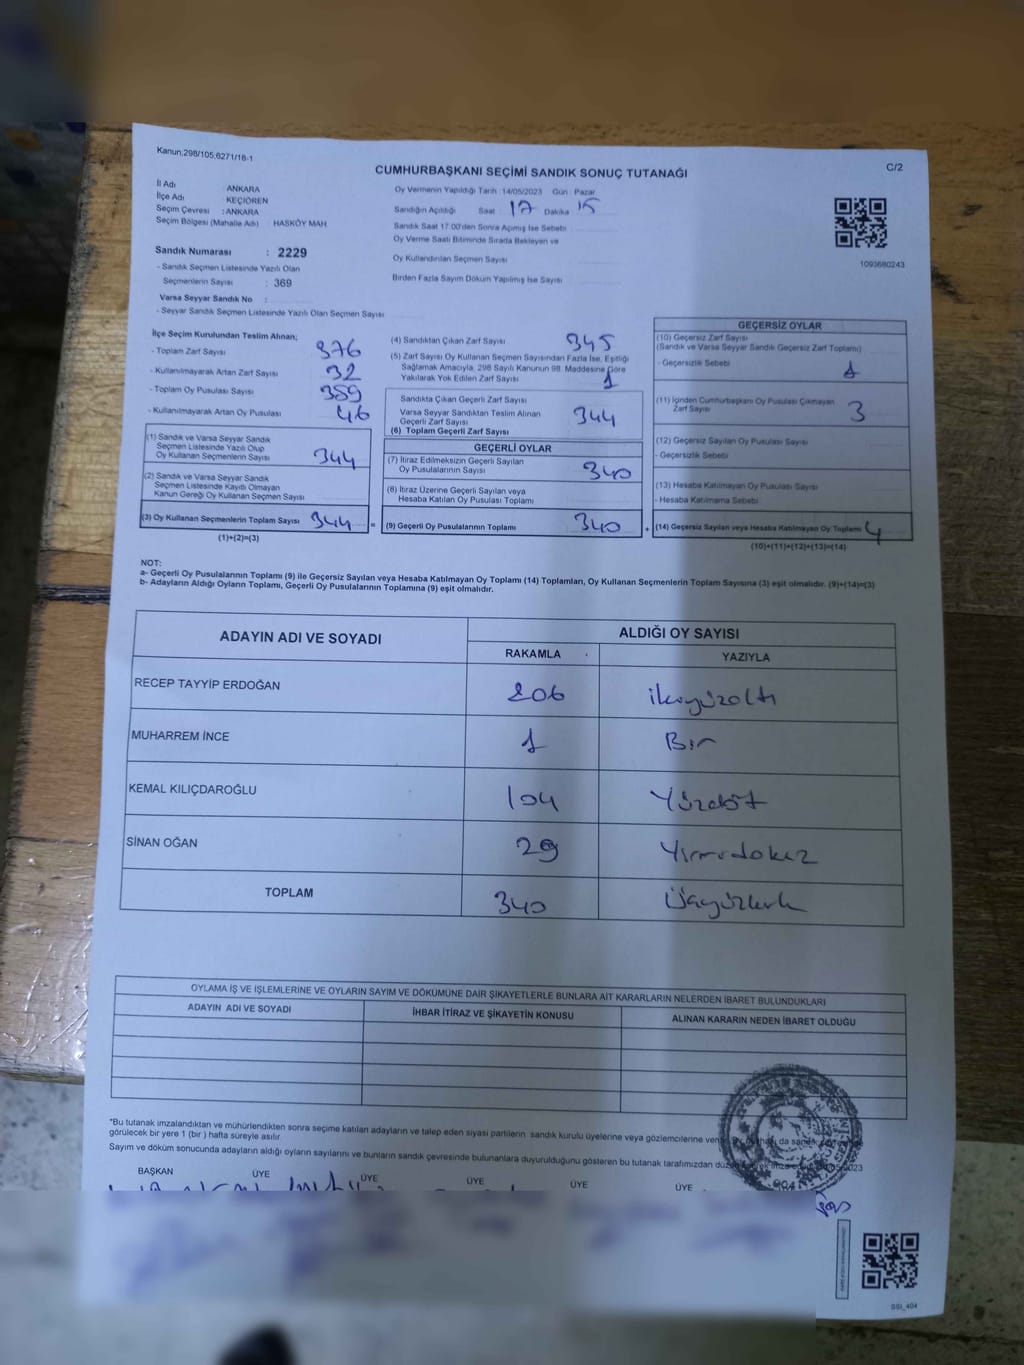 Kanun;298/105;6271/18-1
C/2
CUMHURBAŞKANI SEÇİMİ SANDIK SONUÇ TUTANAĞI
İl Adı : ANKARA
İlçe Adı : KEÇİÖREN
Seçim Çevresi : ANKARA
Seçim Bölgesi (Mahalle Adı) : HASKÖY MAH.
Sandık Numarası : 2229
- Sandık Seçmen Listesinde Yazılı Olan
Seçmenlerin Sayısı : 369
Varsa Seyyar Sandık No :
- Seyyar Sandık Seçmen Listesinde Yazılı Olan Seçmen Sayısı
Oy Vermenin Yapıldığı Tarih : 14/05/2023 Gün : Pazar
Sandığın Açıldığı Saat : 17 Dakika 15
Sandık Saat 17:00'den Sonra Açımış İse Sebebi
Oy Verme Saati Bitiminde Sırada Bekleyen ve
Oy Kullandırılan Seçmen Sayısı
Birden Fazla Sayım Döküm Yapılmış İse Sayısı
1093680243
İlçe Seçim Kurulundan Teslim Alınan;
- Toplam Zarf Sayısı 376
- Kullanılmayarak Artan Zarf Sayısı 32
- Toplam Oy Pusulası Sayısı 389
- Kullanılmayarak Artan Oy Pusulası 46
(1) Sandık ve Varsa Seyyar Sandık
Seçmen Listesinde Yazılı Olup
Oy Kullanan Seçmenlerin Sayısı 344
(2) Sandık ve Varsa Seyyar Sandık
Seçmen Listesinde Kayıtlı Olmayan
Kanun Gereği Oy Kullanan Seçmen Sayısı
(3) Oy Kullanan Seçmenlerin Toplam Sayısı 344 =
(1)+(2)=(3)
(4) Sandıktan Çıkan Zarf Sayısı 345
(5) Zarf Sayısı Oy Kullanan Seçmen Sayısından Fazla İse, Eşitliği
Sağlamak Amacıyla, 298 Sayılı Kanunun 98. Maddesine Göre
Yakılarak Yok Edilen Zarf Sayısı 1
Sandıkta Çıkan Geçerli Zarf Sayısı
Varsa Seyyar Sandıktan Teslim Alınan
Geçerli Zarf Sayısı 344
(6) Toplam Geçerli Zarf Sayısı
GEÇERLİ OYLAR
(7) İtiraz Edilmeksizin Geçerli Sayılan
Oy Pusulalarının Sayısı 340
(8) İtiraz Üzerine Geçerli Sayılan veya
Hesaba Katılan Oy Pusulası Toplamı
(9) Geçerli Oy Pusulalarının Toplamı 340 +
GEÇERSİZ OYLAR
(10) Geçersiz Zarf Sayısı
(Sandık ve Varsa Seyyar Sandık Geçersiz Zarf Toplamı)
- Geçersizlik Sebebi 1
(11) İçinden Cumhurbaşkanı Oy Pusulası Çıkmayan
Zarf Sayısı 3
(12) Geçersiz Sayılan Oy Pusulası Sayısı
- Geçersizlik Sebebi
(13) Hesaba Katılmayan Oy Pusulası Sayısı
- Hesaba Katılmama Sebebi
(14) Geçersiz Sayılan veya Hesaba Katılmayan Oy Toplamı 4
(10)+(11)+(12)+(13)=(14)
NOT:
a- Geçerli Oy Pusulalarının Toplamı (9) ile Geçersiz Sayılan veya Hesaba Katılmayan Oy Toplamı (14) Toplamları, Oy Kullanan Seçmenlerin Toplam Sayısına (3) eşit olmalıdır. (9)+(14)=(3)
b- Adayların Aldığı Oyların Toplamı, Geçerli Oy Pusulalarının Toplamına (9) eşit olmalıdır.
ADAYIN ADI VE SOYADI ALDIĞI OY SAYISI
RAKAMLA YAZIYLA
RECEP TAYYİP ERDOĞAN 206 ikiyüzaltı
MUHARREM İNCE 1 Bir
KEMAL KILIÇDAROĞLU 104 Yüzdöt
SİNAN OĞAN 29 Yirmidokuz
TOPLAM 340 Üçyüzkırk
OYLAMA İŞ VE İŞLEMLERİNE VE OYLARIN SAYIM VE DÖKÜMÜNE DAİR ŞİKAYETLERLE BUNLARA AİT KARARLARIN NELERDEN İBARET BULUNDUKLARI
ADAYIN ADI VE SOYADI İHBAR İTİRAZ VE ŞİKAYETİN KONUSU ALINAN KARARIN NEDEN İBARET OLDUĞU
*Bu tutanak imzalandıktan ve mühürlendikten sonra seçime katılan adayların ve talep eden siyasi partilerin sandık kurulu üyelerine veya gözlemcilerine
görülecek bir yere 1 (bir ) hafta süreyle asılır.
Sayım ve döküm sonucunda adayların aldığı oyların sayılarını ve bunların sandık çevresinde bulunanlara duyurulduğunu gösteren bu tutanak tarafımızdan
BAŞKAN ÜYE ÜYE ÜYE ÜYE ÜYE
SSI_404